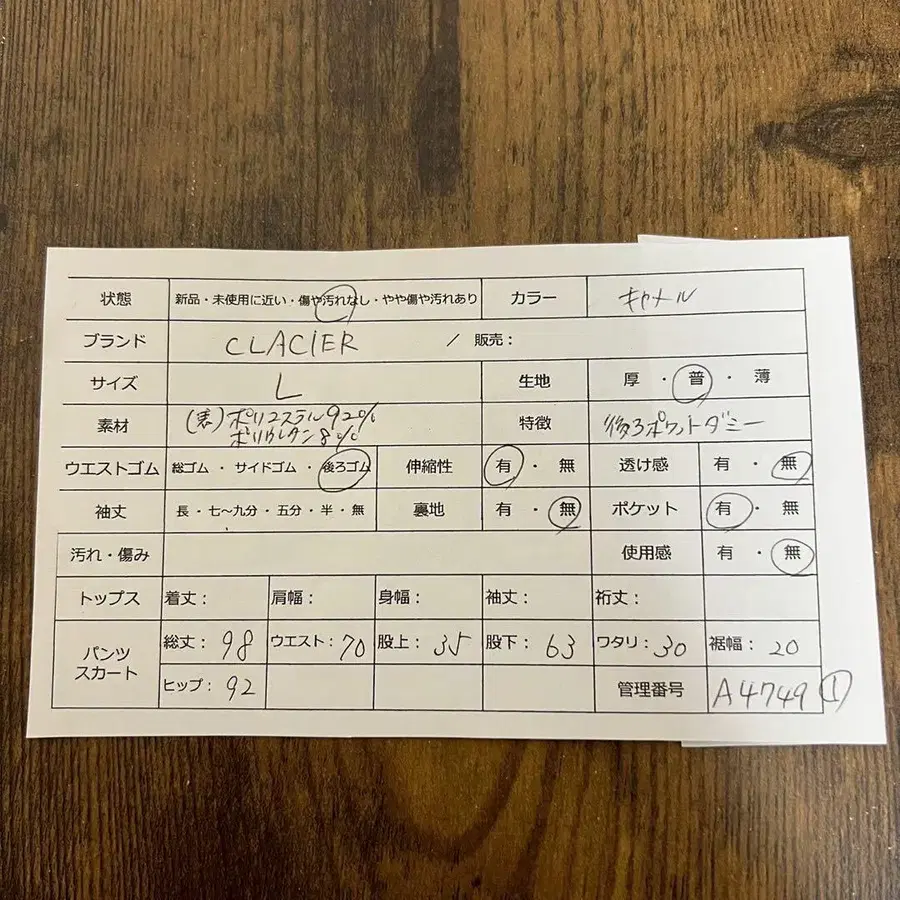 状態 新品・未使用に近い・傷や汚れなし・やや傷や汚れあり カラー キャメル
ブランド CLACIER / 販売:
サイズ L 生地 厚・普・薄
素材 (表)ポリエステル92% 特徴 後ろポケットダミー
ポリウレタン8%
ウエストゴム 総ゴム・サイドゴム・後ろゴム 伸縮性 有・無 透け感 有・無
袖丈 長・七〜九分・五分・半・無 裏地 有・無 ポケット 有・無
汚れ・傷み 使用感 有・無
トップス 着丈: 肩幅: 身幅: 袖丈: 裄丈:
パンツ 総丈:98 ウエスト:70 股上:35 股下:63 ワタリ:30 裾幅:20
スカート ヒップ:92 管理番号 A4749 ①